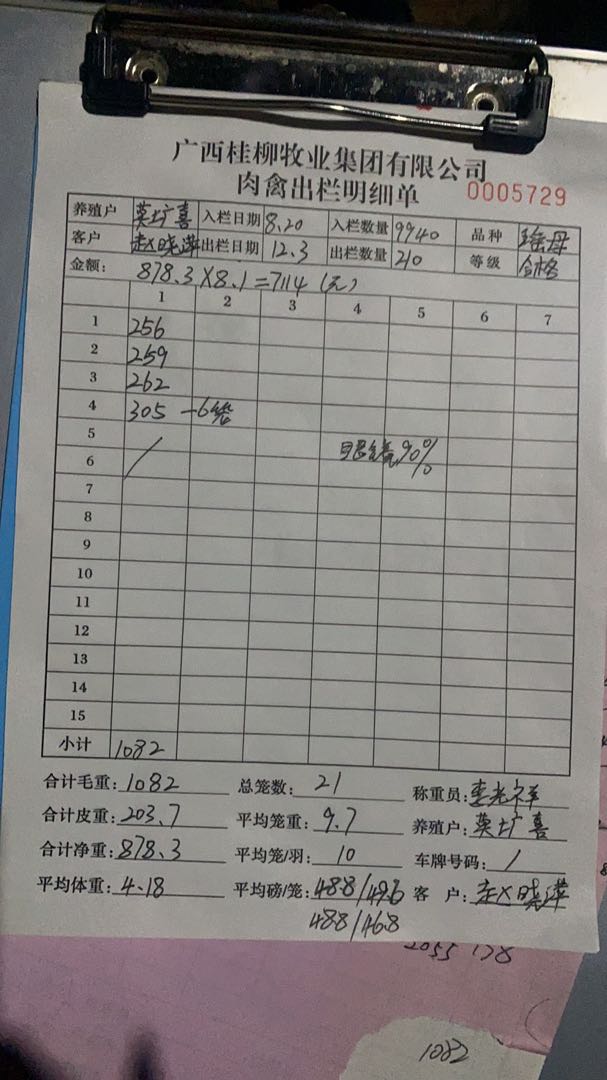 广西桂柳牧业集团有限公司
肉禽出栏明细单 0005729
养殖户 莫土广喜 入栏日期 8.20 入栏数量 9940 品种
客户 赵晓萍 出栏日期 12.3 出栏数量 210 等级 合格
金额: 878.3×8.1=7114(元)
1 2 3 4 5 6 7
1 256
2 259
3 262
4 305 -6笼
5
6 90%
7
8
9
10
11
12
13
14
15
小计 1082
合计毛重: 1082 总笼数: 21 称重员: 李光祥
合计皮重: 203.7 平均笼重: 9.7 养殖户: 莫土广喜
合计净重: 878.3 平均笼/羽: 10 车牌号码: /
平均体重: 4.18 平均磅/笼: 488/496 客户: 赵晓萍
488/468
2055 138
1082